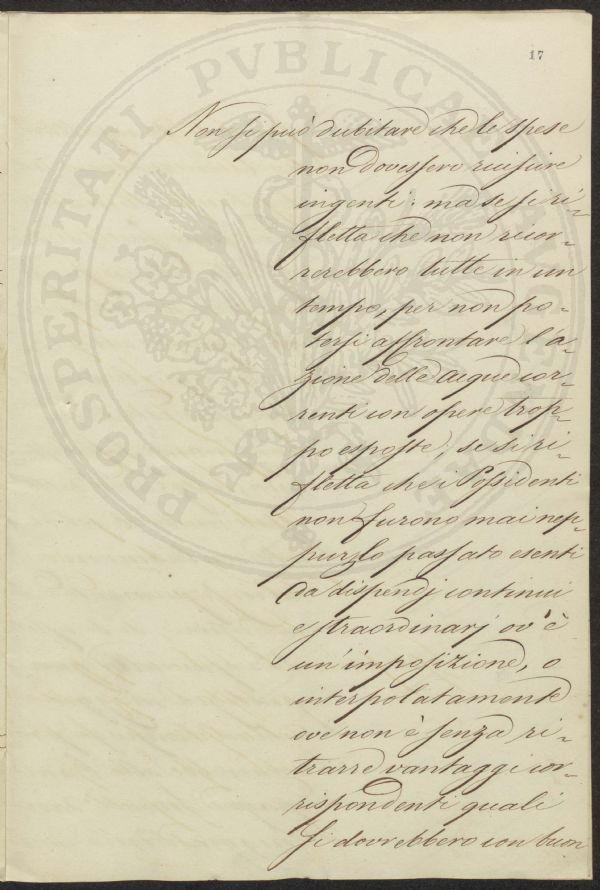 17
Non si può dubitare che le spese
non dovessero riuscire
ingenti: ma se si ri-
fletta che non ricor-
rerebbero tutte in un
tempo, per non po-
tersi affrontare l'a-
zione delle acque cor-
renti con opere trop-
po esposte; se si ri-
fletta che i Possidenti
non furono mai nep-
pur lo passato esenti
da dispendj continui
e straordinarj ov'è
un'imposizione, o
interpolatamente
ove non è senza ri-
trarre vantaggi cor-
rispondenti quali
si dovrebbero con buon
PROSPERITATI PVBLICAE